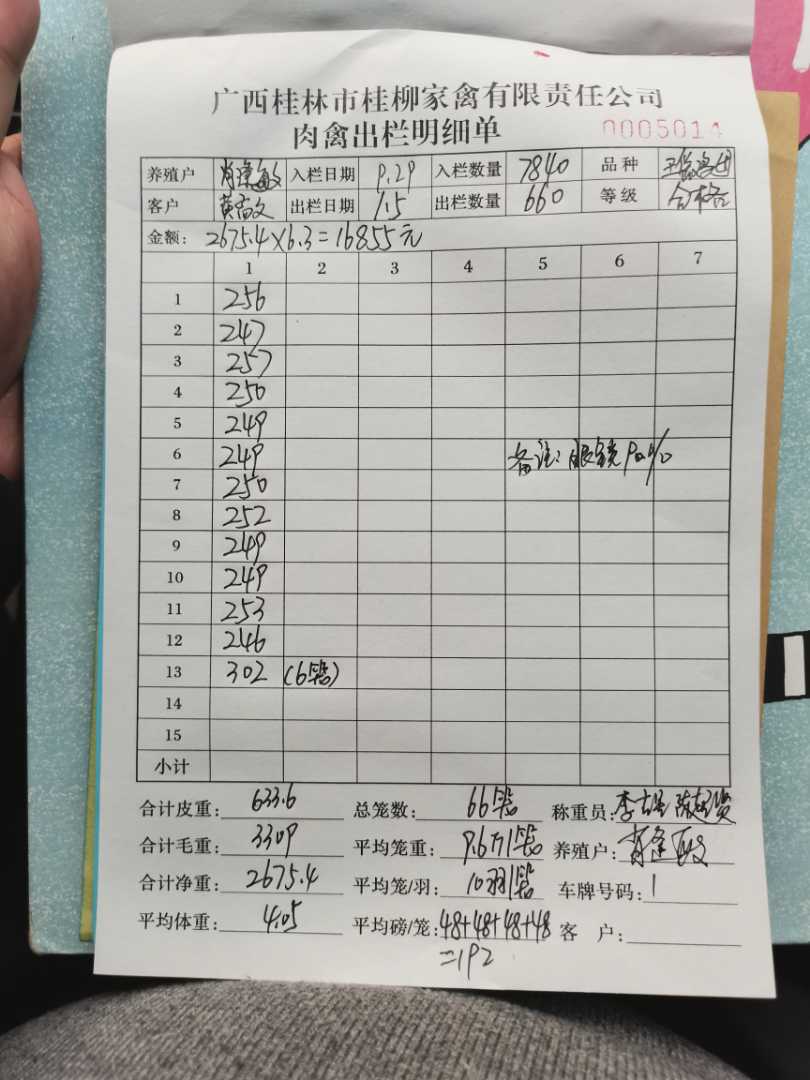 广西桂林市桂柳家禽有限责任公司
肉禽出栏明细单
0005014
养殖户 肖逢敏 入栏日期 9.29 入栏数量 7840 品种
客户 黄高文 出栏日期 1.5 出栏数量 660 等级 合格
金额: 2675.4×6.3=16855元
1 2 3 4 5 6 7
1 256
2 247
3 257
4 250
5 249
6 249 备注:眼镜90%
7 250
8 252
9 249
10 249
11 253
12 246
13 302 (6笼)
14
15
小计
合计皮重: 633.6 总笼数: 66笼 称重员:
合计毛重: 3309 平均笼重: 9.6斤/笼 养殖户: 肖逢敏
合计净重: 2675.4 平均笼/羽: 10羽/笼 车牌号码: 1
平均体重: 4.05 平均磅/笼: 48+48+48+48 客 户:
=192